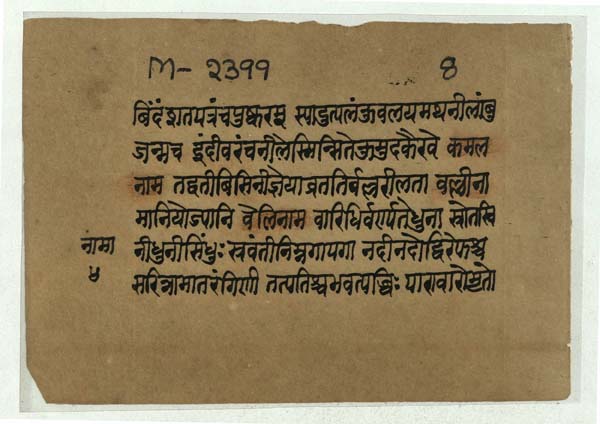 M-२३९९ 8
बिंदंशतपत्रंचपुष्करम् स्याडुत्पलंकुवलयमथनीलांबु
जन्मच इंदीवरंचनीलेस्मिन्सितेकुमुदकैरवे कमल
नाम तद्वतीबिसिनीज्ञेयाव्रततिर्बल्लरीलता वल्लीना
मानियोज्यानि वेलिनाम वारिधिर्वर्ण्यतेधुना स्रोतस्वि
नामा नीधुनीसिंधुः स्रवंतीनिम्नगापगा नदीनदोद्विरेफश्च
४ सरिन्नामातरंगिणी तत्पतिश्चभवत्यब्धिः पारावारो